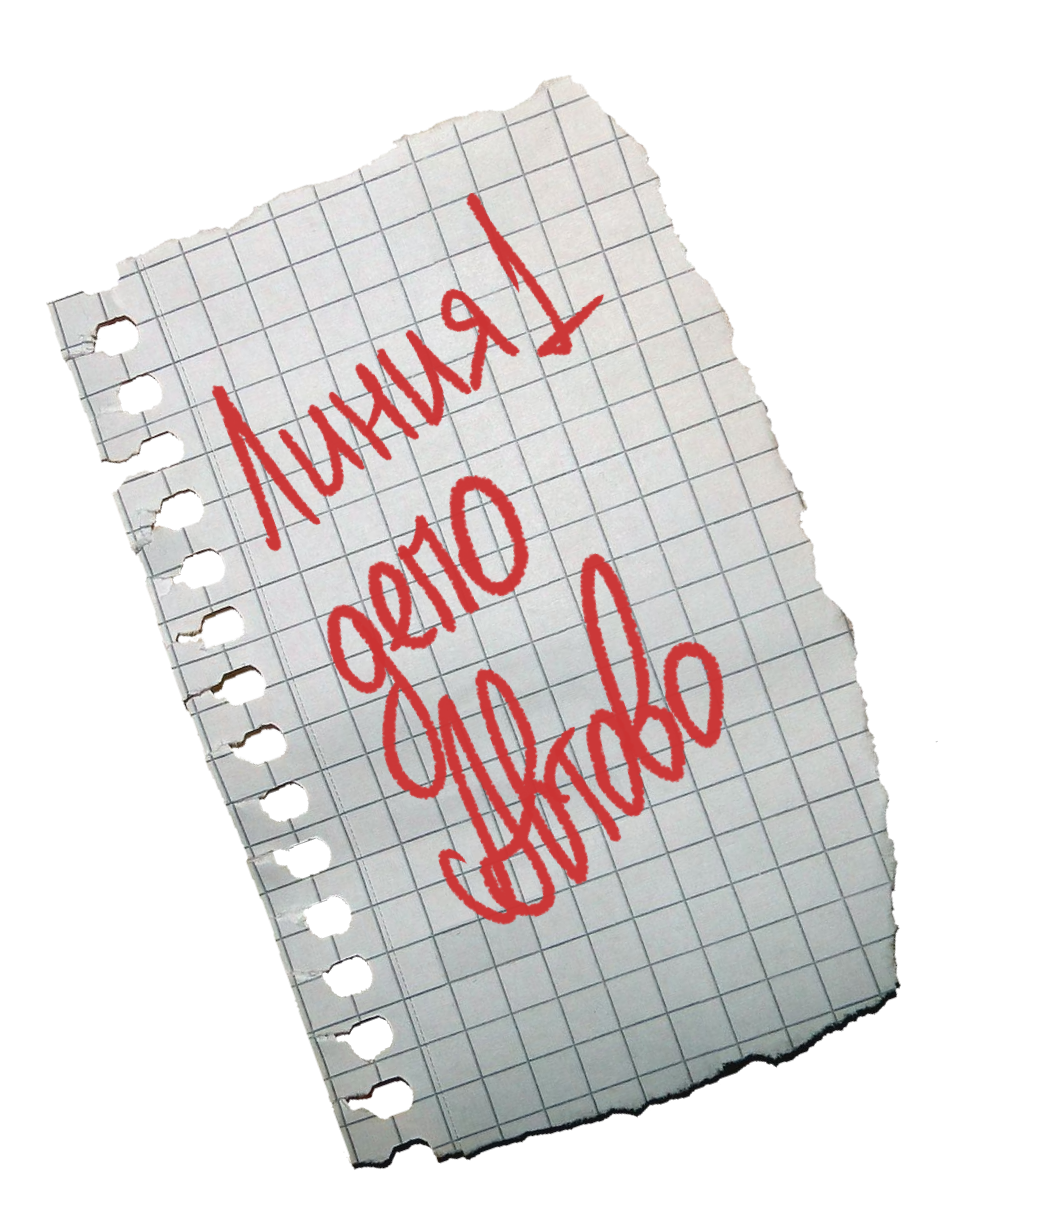 Линия 1
депо
Автово